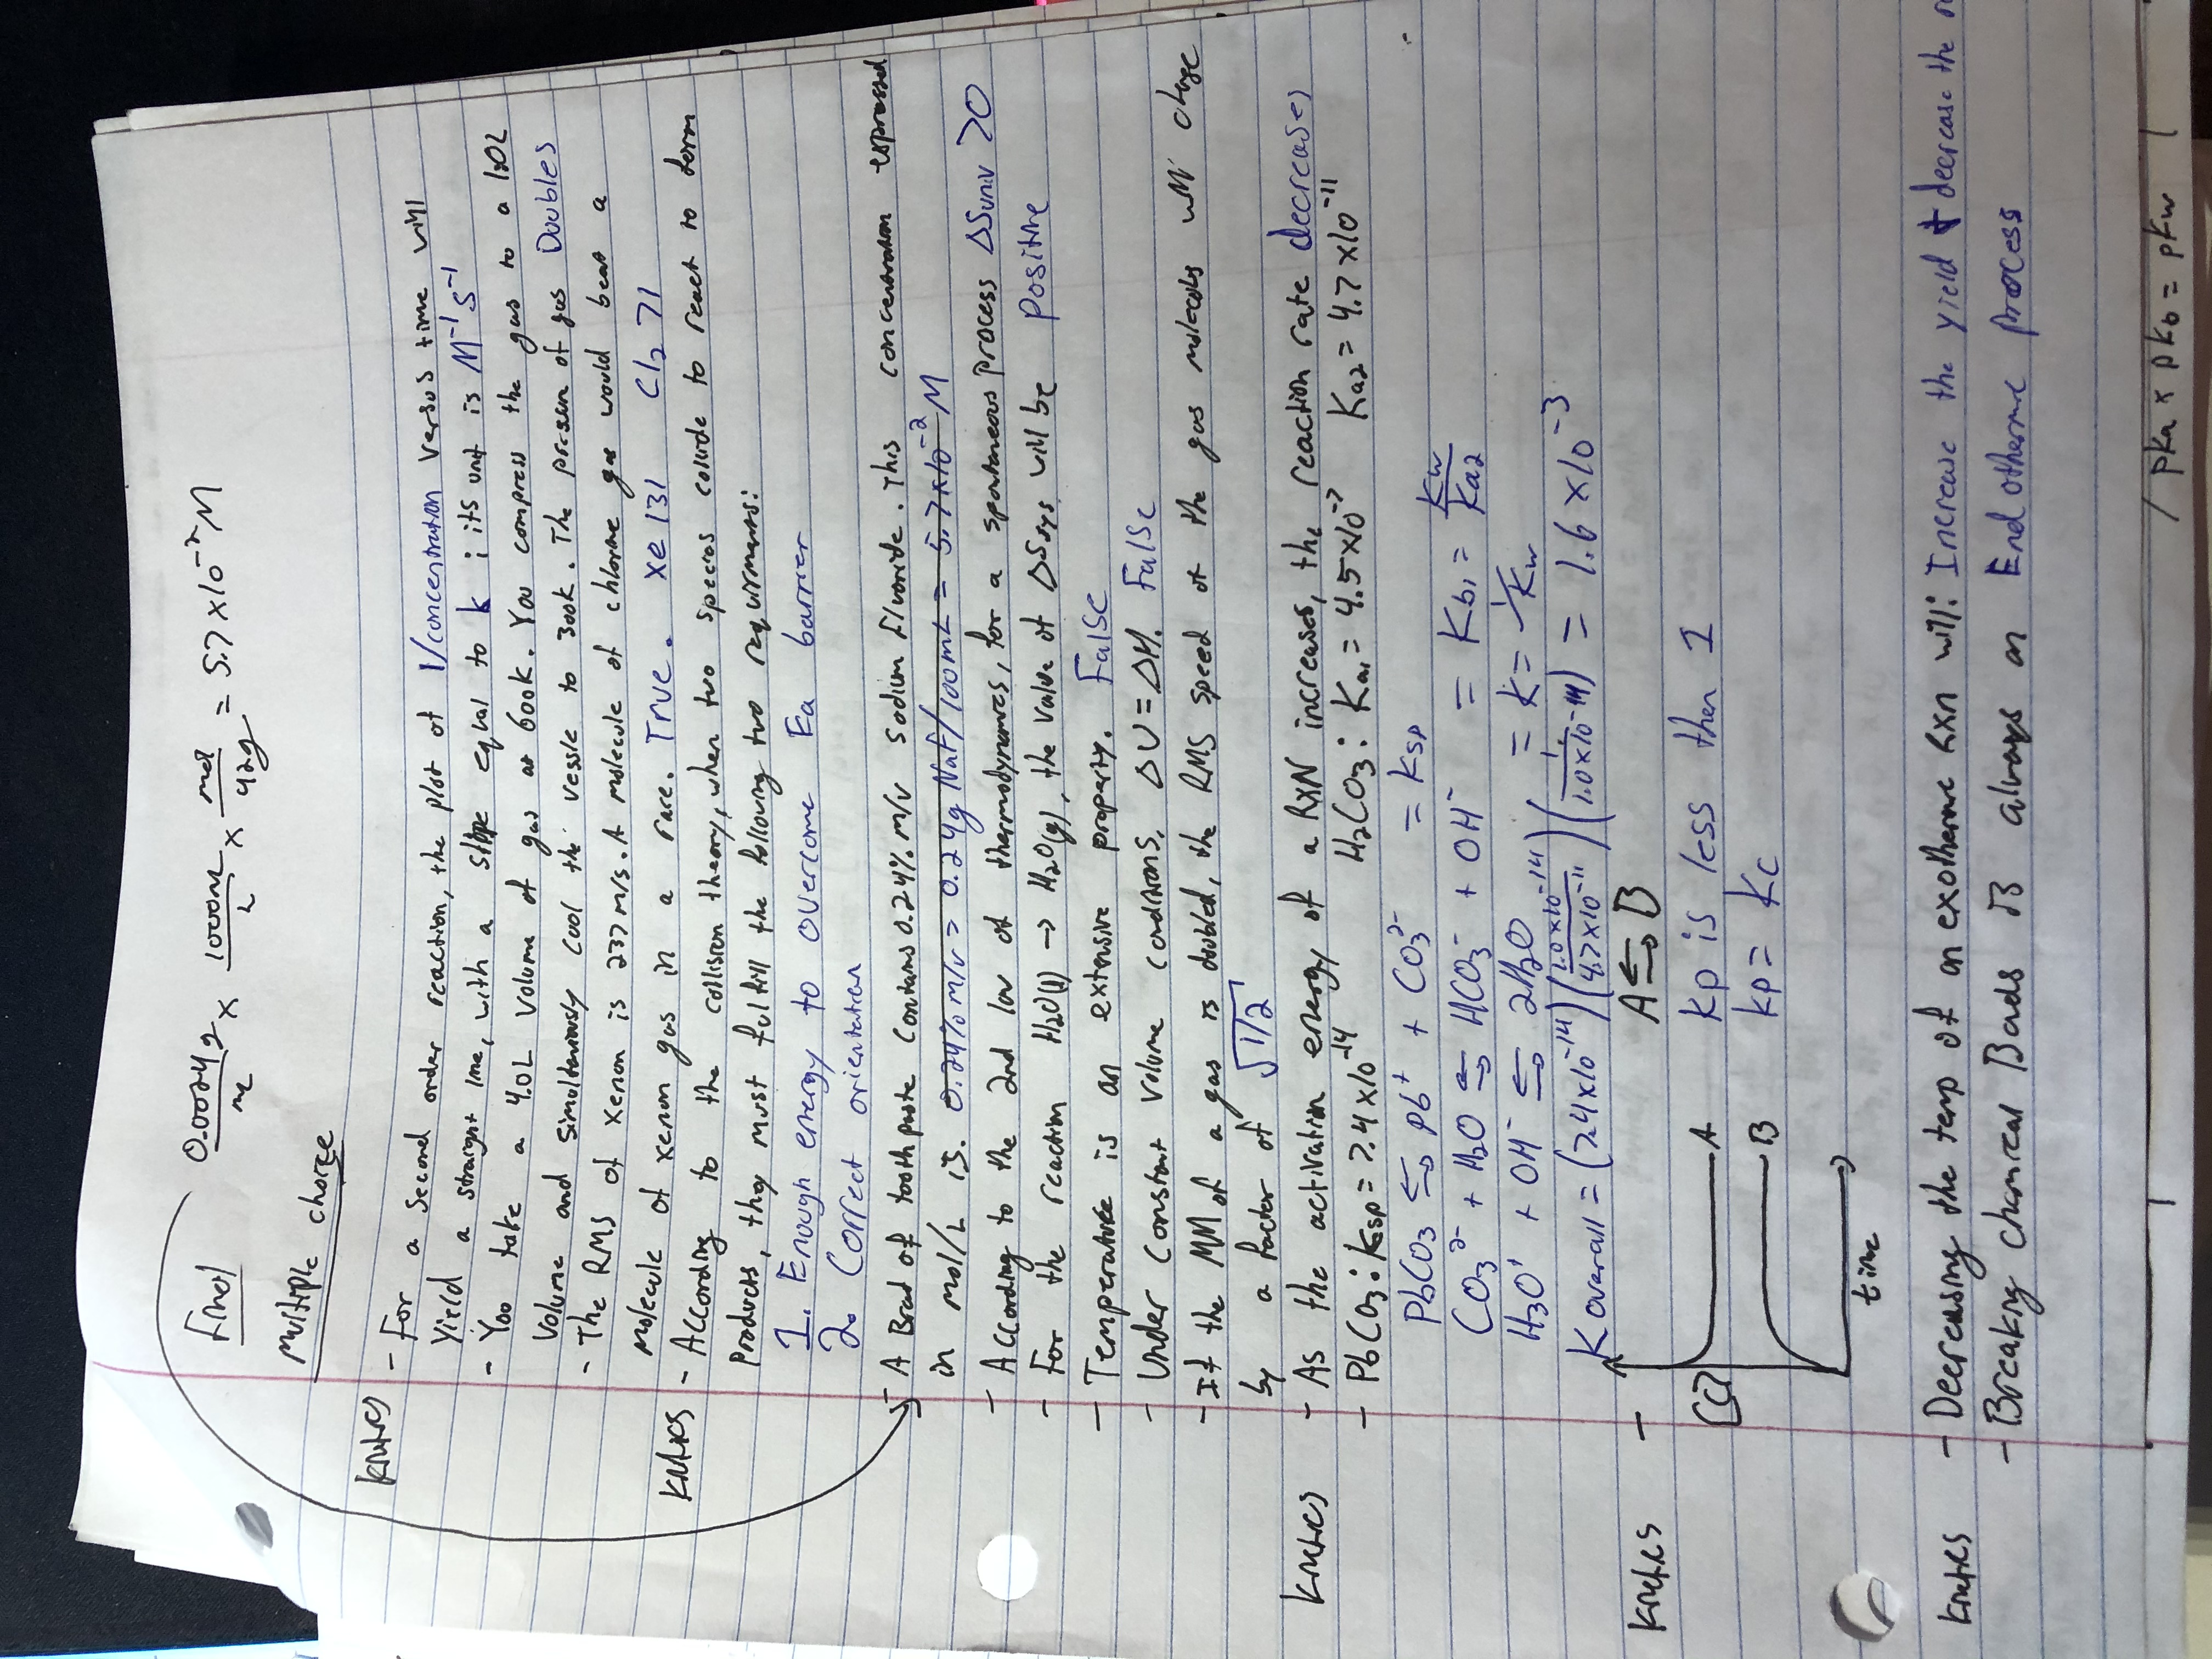 Final
0.0024g/mL × 1000mL/L × mol/42g = 5.7 × 10⁻² M
Multiple choice
Knetics - For a second order reaction, the plot of 1/concentration versus time will
Yield a straight line, with a slope equal to k ; its unit is M⁻¹ s⁻¹
- You take a 4.0L volume of gas at 600k. You compress the gas to a 1.0L
Volume and simultaneously cool the vessle to 300k. The pressure of gas Doubles
- The RMS of xenon is 237 m/s. A molecule of chlorine gas would beat a
molecule of xenon gas in a race. True. xe 131 Cl₂ 71
Knetics - According to the collision theory, when two species colide to react to form
Products, they must fulfill the following two requirements:
1. Enough energy to overcome Ea barrier
2. Correct orientation
- A Brad of toothpaste contains 0.24% m/v sodium fluoride. This concentration expressed
in mol/L is. 0.24% m/v = 0.24g NaF/100mL = 5.7×10⁻² M
- According to the 2nd law of thermodynamics, for a spontaneous process ΔSuniv >0
- For the reaction H₂O(l) → H₂O(g), the value of ΔSsys will be Positive
- Temperature is an extensive property. False
- Under constant volume conditions, ΔU = ΔH. False
- If the MM of a gas is doubled, the RMS speed of the gas molecules will change
by a factor of √1/2
Knetics - As the activation energy of a RxN increases, the reaction rate decreases
- PbCO₃: Ksp = 7.4×10⁻¹⁴ H₂CO₃: Ka₁ = 4.5×10⁻⁷ Ka₂ = 4.7×10⁻¹¹
PbCO₃ ⇆ Pb⁺ + CO₃²⁻ = Ksp
CO₃²⁻ + H₂O ⇆ HCO₃⁻ + OH⁻ = Kb₁ = Kw/Ka₂
H₃O⁺ + OH⁻ ⇆ 2H₂O = K = 1/Kw
Koverall = (7.4×10⁻¹⁴)(1.0×10⁻¹⁴/4.7×10⁻¹¹)(1/1.0×10⁻¹⁴) = 1.6×10⁻³
Knetics - A ⇆ B
[C] A kp is less then 1
B kp = kc
time
Knetics - Decreasing the temp of an exotherme Rxn will: Increase the yield + decrease the
- Breaking chemical Bonds is always an Endotherme process
/ pKa × pKb = pKw |